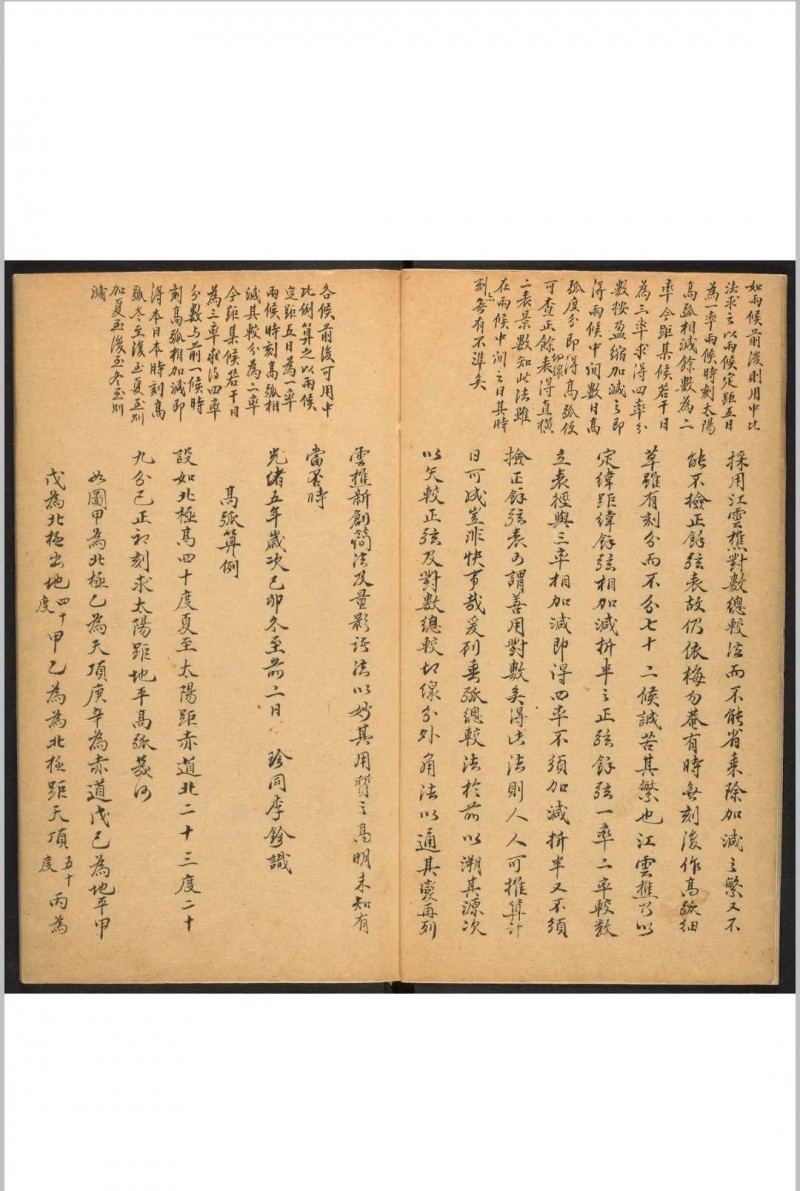 如兩候前後則用中比
法求之以兩候定距五日
為一率兩候時刻太陽
高弧相減餘數為二
率今距某候若干日
為三率求得四率分
數按盈縮加減之即
得兩候中間數日高
弧度分即得高弧後
可查正餘切線表得直橫
二表景數知此法雖
在兩候中間之日其時
刻亦無有不準矣
採用江雲樵對數總較法而不能省乘除加減之繁又不
能不檢正餘弦表故仍依梅勿菴有時無刻後作高弧細
草雖有刻分而不分七十二候誠苦其繁也江雲樵乃以
定緯距緯餘弦相加減折半之正弦餘弦一率二率較數
立表徑與三率相加減即得四率不須加減折半又不須
檢正餘弦表可謂善用對數矣得此法則人人可推算計
日可成豈非快事哉爰列垂弧總較法於前以溯其源次
以矢較正弦及對數總較切線分外角法以通其變再列
雲樵新創簡法及量影諸法以妙其用質之高明未知有
當否時
光緒五年歲次己卯冬至前二日 珍同李鉁識
高弧算例
設如北極高四十度夏至太陽距赤道北二十三度二十
九分巳正初刻求太陽距地平高弧幾何
如圖甲為北極乙為天頂庚辛為赤道戊己為地平甲
戊為北極出地四十度甲乙為為北極距天頂五十度丙為
各候前後可用中
比例算之以兩候
定距五日為一率
兩候時刻高弧相
減其較分為二率
今距某候若干日
為三率求得四率
分數與前一候時
刻高弧相加減即
得本日本時刻高
弧冬至後至夏至則
加夏至後至冬至則
減